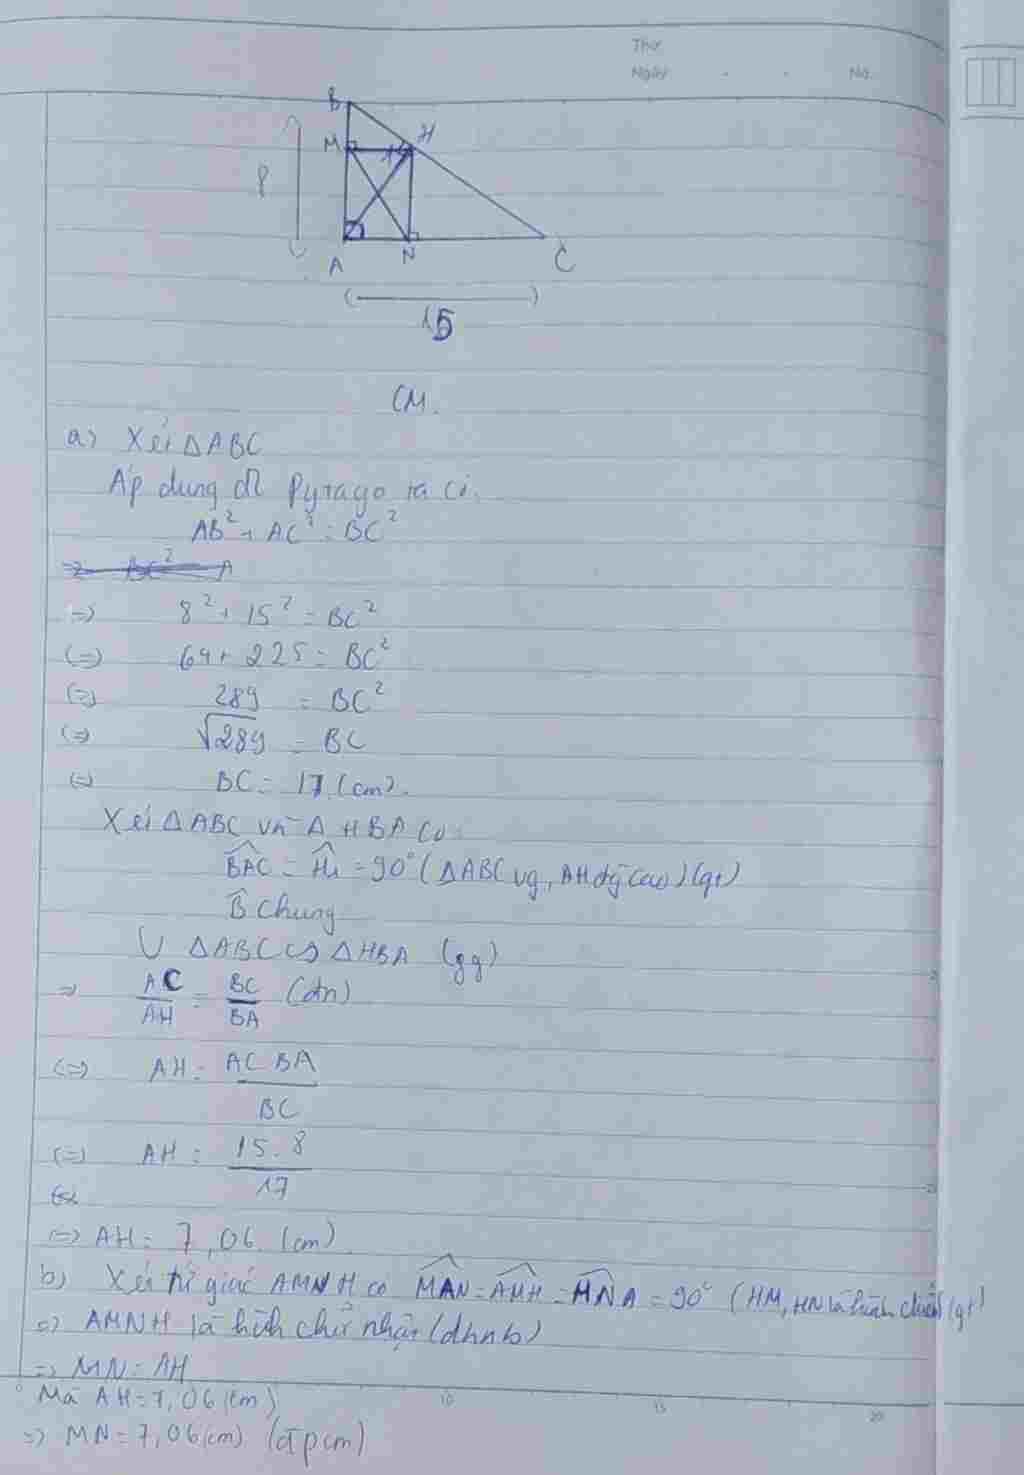 Thứ
Ngày . . No.
B
M H
8 1
A N C
15
CM.
a) Xét ΔABC
Áp dụng đl Pytago ta có.
AB² + AC² = BC²
=> 8² + 15² = BC²
(=) 64 + 225 = BC²
(=) 289 = BC²
(=) √289 = BC
(=) BC = 17 (cm).
Xét ΔABC và Δ HBA có
BAC = H₁ = 90° (ΔABC vg, AH đg cao) (gt)
B chung
ΔABC ∽ ΔHBA (gg)
=> AC/AH = BC/BA (đn)
(=) AH = AC BA/BC
(=) AH = 15.8/17
=> AH = 7,06 (cm)
b) Xét tứ giác AMNH có MAN = AMH = HNA = 90° (HM, HN là hình chiếu) (gt)
=> AMNH là hình chữ nhật (dhnb)
=> MN = AH
Mà AH = 7,06 (cm)
=> MN = 7,06 (cm) (đpcm)
10 15 20